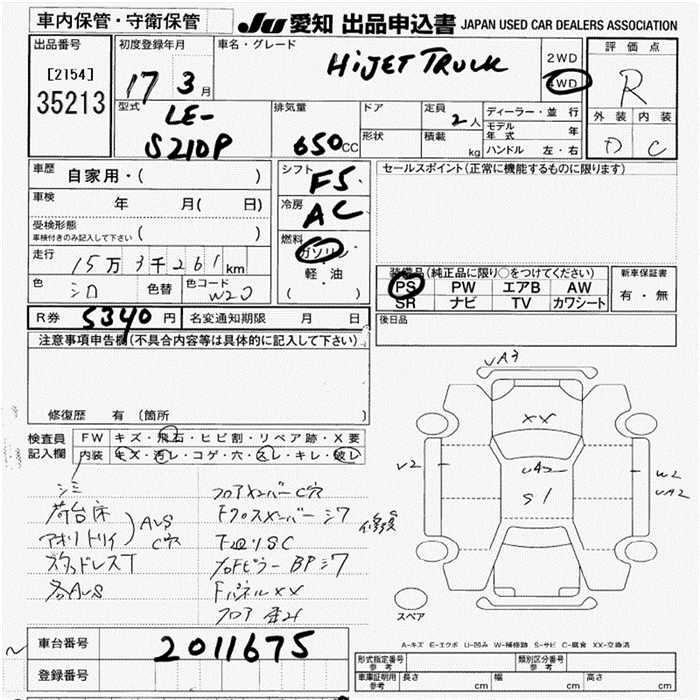 車内保管・守衛保管
JU 愛知 出品申込書 JAPAN USED CAR DEALERS ASSOCIATION
出品番号
[2154]
35213
初度登録年月
17 3月
車名・グレード
HiJET TRUCK
2WD
4WD
評価点
R
外装 内装
D C
型式
LE-
S210P
排気量
650cc
ドア
形状
定員
2人
積載
kg
ディーラー・並行
モデル年式 年
ハンドル 左・右
車歴 自家用・( )
車検 年 月( 日)
受検形態
車検付きのみ記入して下さい ( )
走行 15万3千261km
色 シロ 色替 色コード W20
シフト
F5
冷房
AC
燃料
ガソリン
・
軽油
( )
セールスポイント(正常に機能するものに限ります)
装備品(純正品に限り○をつけてください)
PS PW エアB AW
SR ナビ TV カワシート
新車保証書
有・無
後日品
R券 5340円 名変通知期限 月 日
注意事項申告欄(不具合内容等は具体的に記入して下さい)
修復歴 有 (箇所
検査員記入欄
FW キズ・飛石・ヒビ割・リペア跡・X要
内装 キズ・汚レ・コゲ・穴・スレ・キレ・破レ
シミ
荷台床
アオリ トリイ
AUS
C穴
スタッドレスT
各AUS
フロアメンバーC穴
Fクロスメンバーシワ
下廻りSC
FパネルXX
修復
UA3
XX
UA2
S1
V2
W2
UA2
スペア
A-キズ E-エクボ U-凹み W-補修跡 S-サビ C-腐食 XX-交換済
車台番号 2011675
登録番号
形式指定番号 参考
類別区分番号 参考
車庫証明用 参考
長さ cm 幅 cm 高さ cm